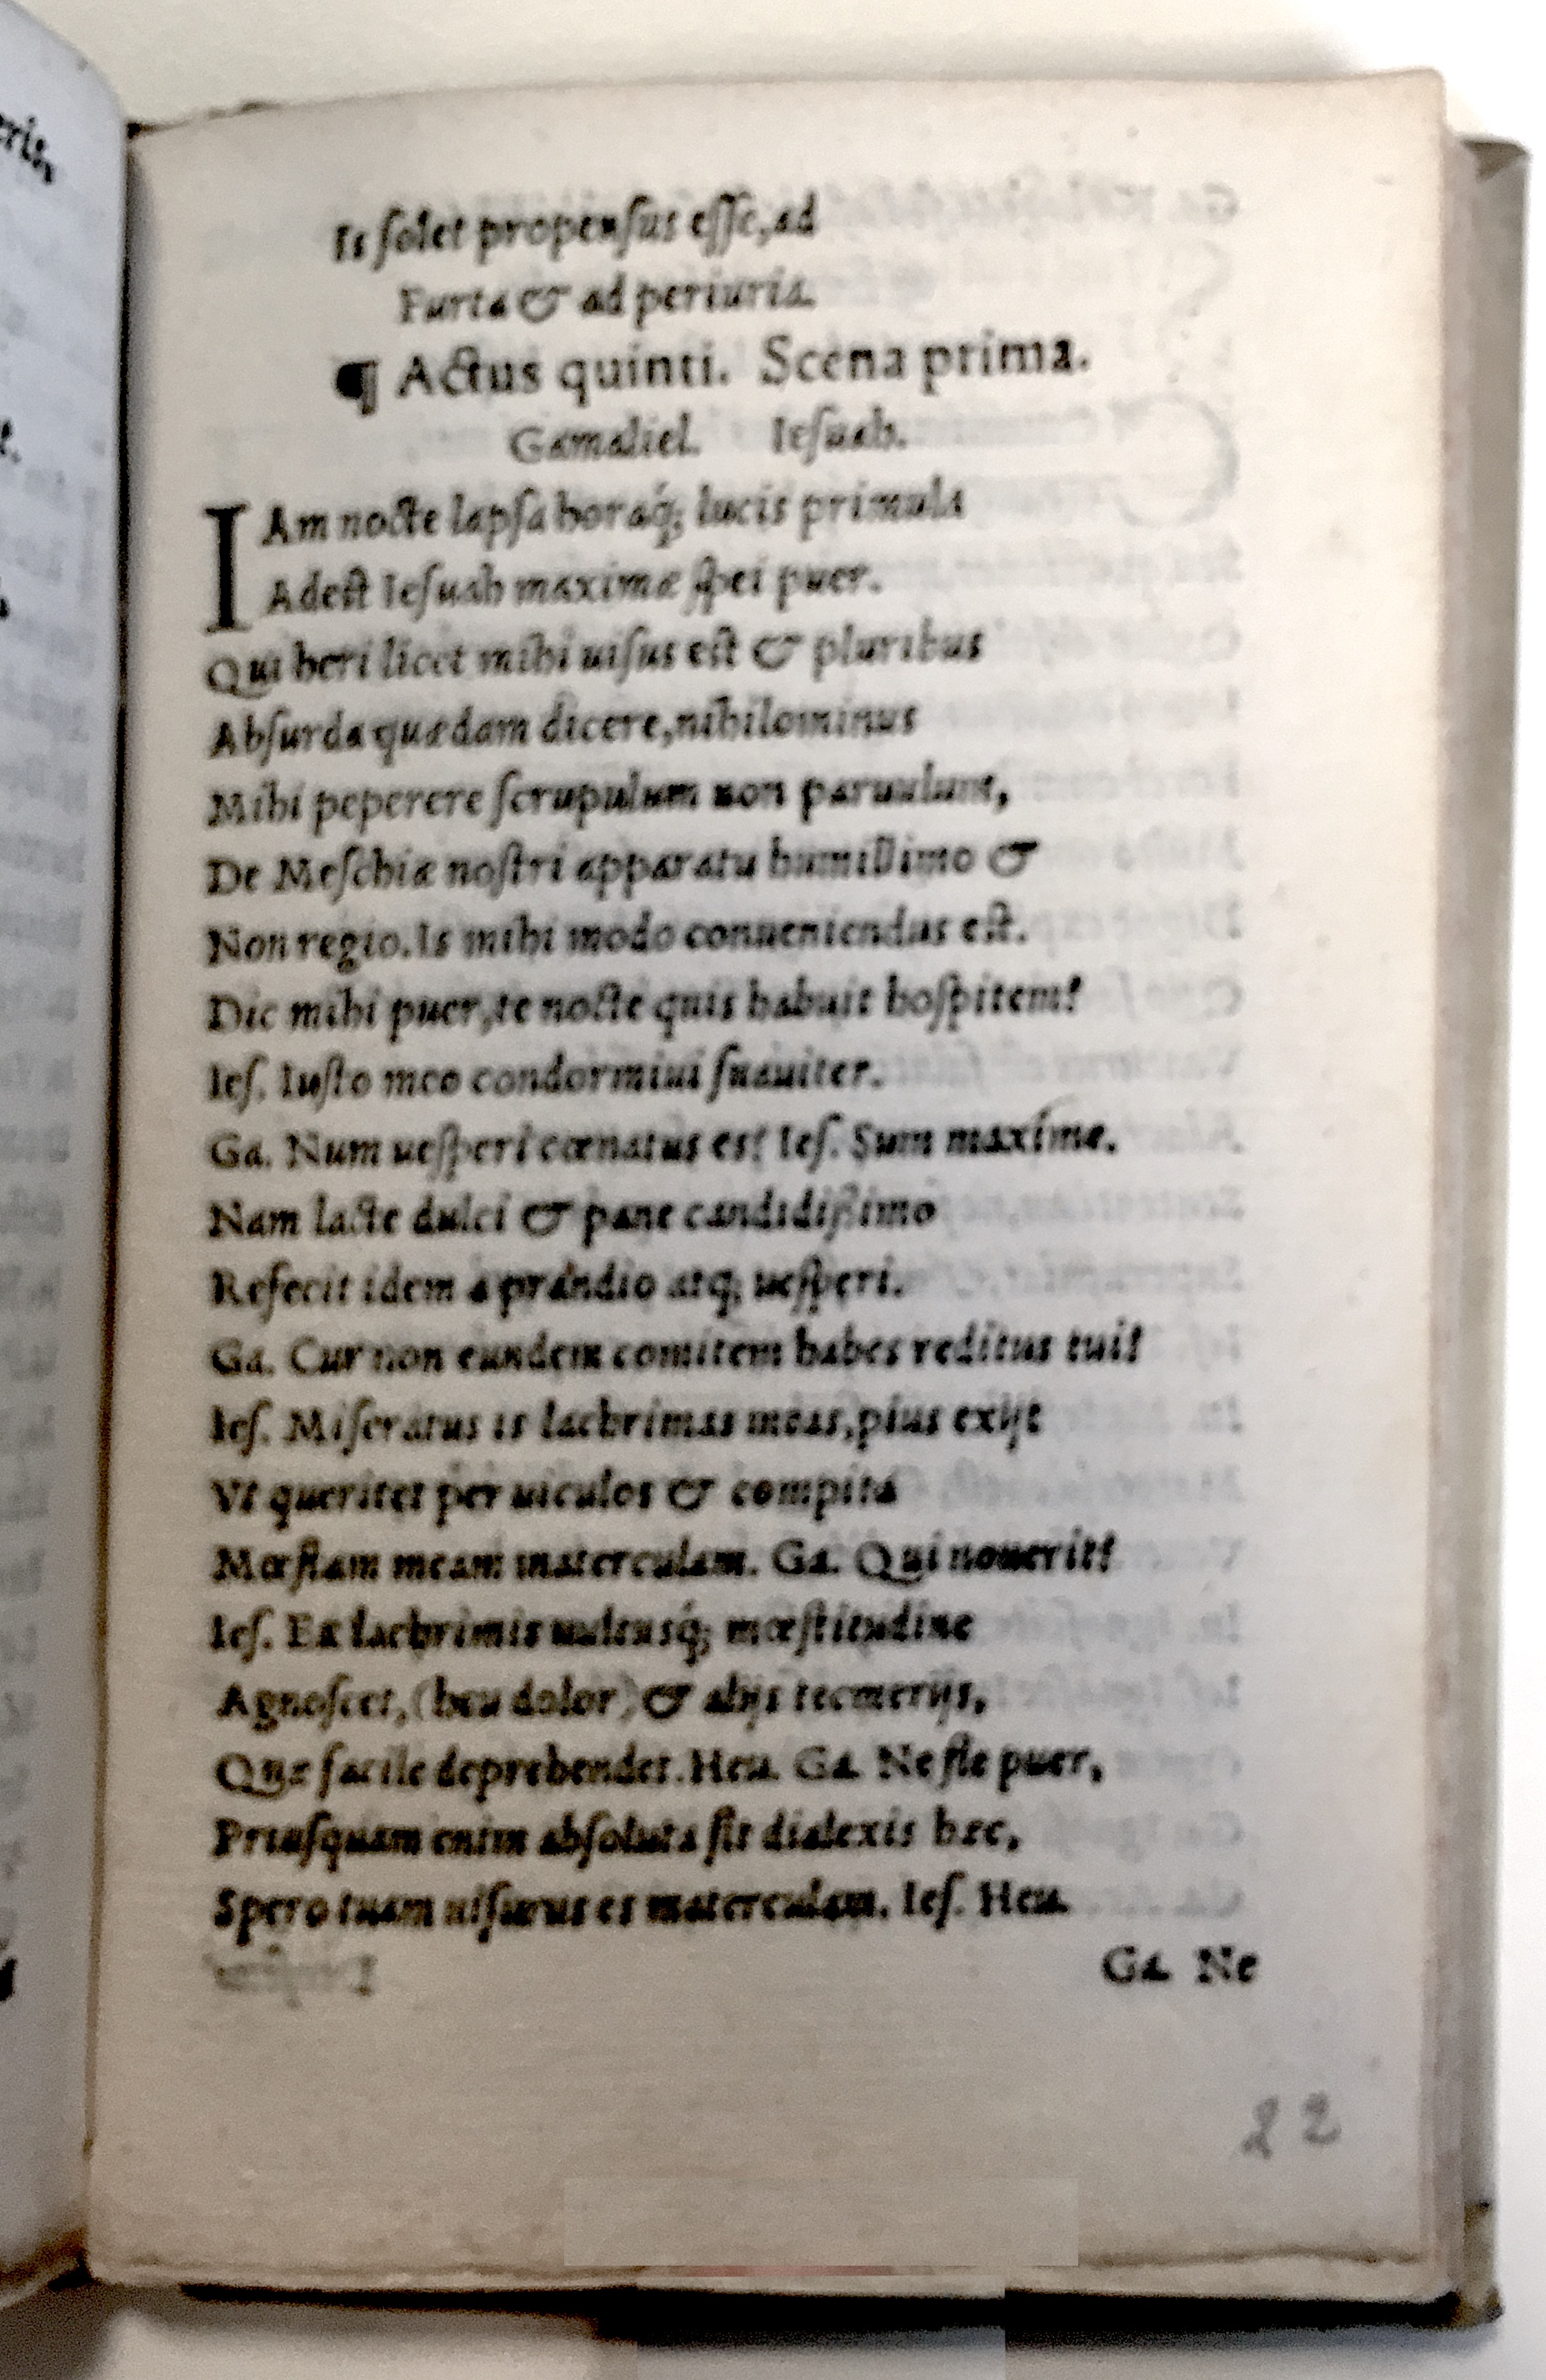 Is ſolet propenſus eſſe, ad
Furta & ad periuria.
¶ Actus quinti. Scena prima.
Gamaliel. Ieſuah.
IAm nocte lapſa horaq́; lucis primula
Adeſt Ieſuah maximæ ſpei puer.
Qui heri licet mihi uiſus eſt & pluribus
Abſurda quædam dicere, nihilominus
Mihi peperere ſcrupulum non paruulum,
De Meſchiæ noſtri apparatu humillimo &
Non regio. Is mihi modo conueniendus eſt.
Dic mihi puer, te nocte quis habuit hoſpitem?
Ieſ. Iuſto meo condormiui ſuauiter.
Ga. Num ueſperi cœnatus es? Ieſ. Sum maxime.
Nam lacte dulci & pane candidiſsimo
Refecit idem a prandio atq; ueſperi.
Ga. Cur non eundem comitem habes reditus tui?
Ieſ. Miſeratus is lachrimas meas, pius exijt
Vt queritet per uiculos & compita
Mœſtam meam materculam. Ga. Qui nouerit?
Ieſ. Ex lachrimis uultusq́; mœſtitudine
Agnoſcet, (heu dolor) & alijs tecmerijs,
Quæ facile deprehendet. Heu. Ga. Ne fle puer,
Priuſquam enim abſoluta ſit dialexis hæc,
Spero tuam uiſurus es materculam. Ieſ. Heu.
Ga. Ne
22